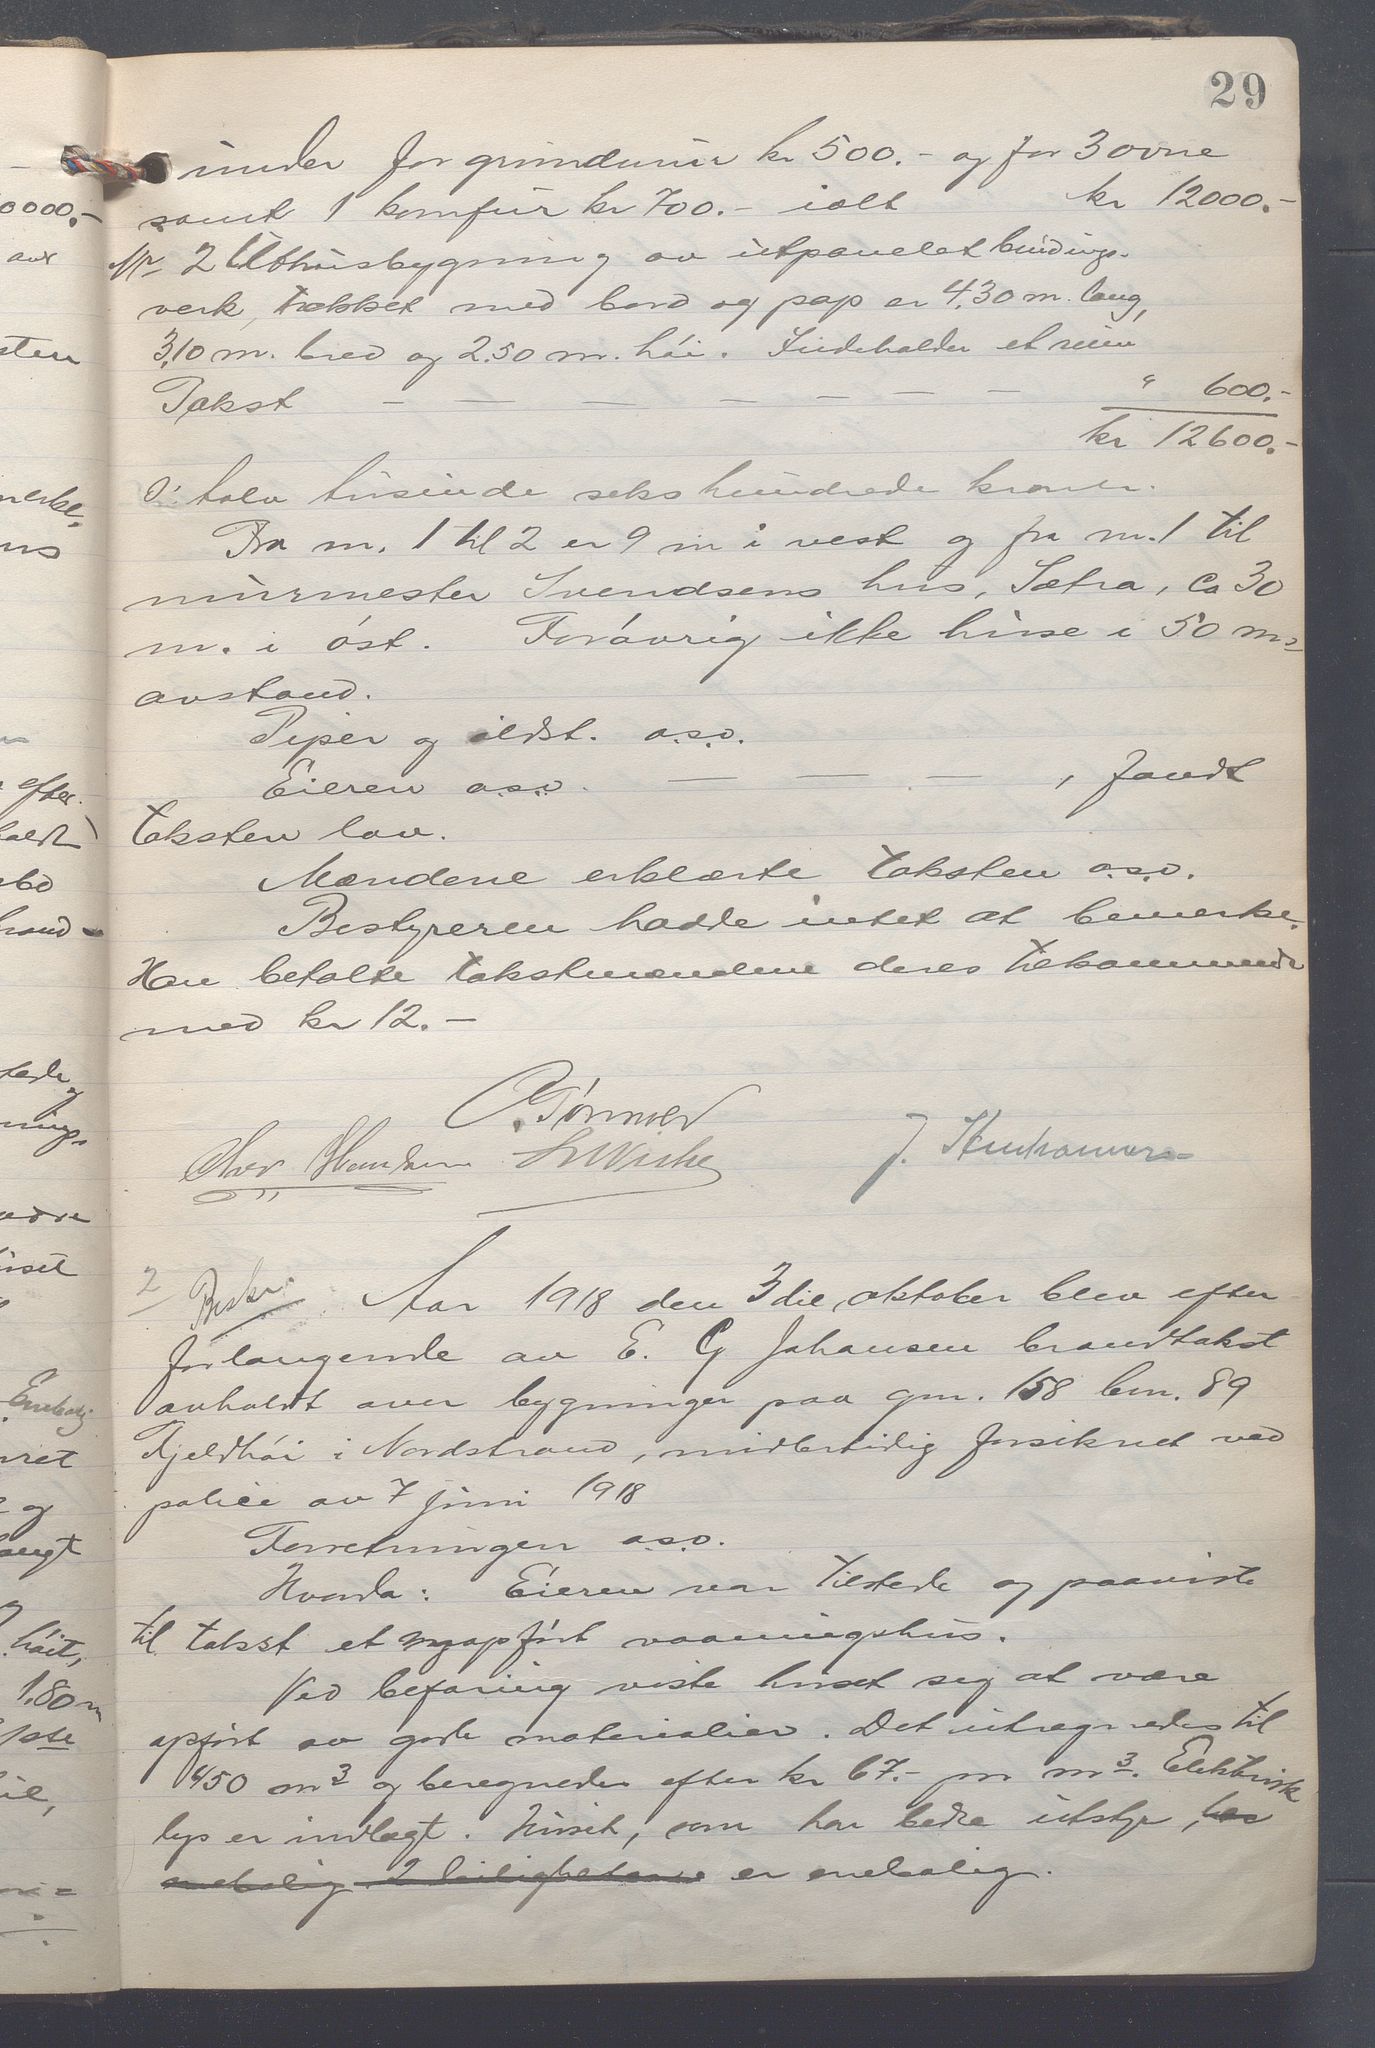 29
under for grundmur kr 500.- og for 3 ovne
samt 1 komfur kr 700.- ialt kr 12000.-
Nr 2 Uthusbygning av utpanelet bindings-
verk, tækket med bord og pap er 4,30 m. lang,
3,10 m. bred og 2.50 m. høi. Indeholder et rum
Takst — — — — — — — " 600.-
kr 12600.-
ɔ: tolv tusinde seks hundrede kroner.
Fra nr. 1 til 2 er 9 m i vest og fra nr. 1 til
murmester Svendsens hus, Sætra, ca 30
m. i øst. Forøvrig ikke huse i 50 m.s
avstand.
Piper og ildst. o.s.v.
Eieren o.s.v. — — — , fandt
taksten lav.
Mændene erklærte taksten o.s.v.
Bestyreren hadde intet at bemerke.
Han betalte takstmændene deres tilkommende
med kr 12.-
2 Beskr. Aar 1918 den 3die oktober blev efter
forlangende av E. G Johansen brandtakst
avholdt over bygninger paa gnr. 158 bnr. 89
Fjeldhøi i Nordstrand, midlertidig forsikret ved
police av 7 juni 1918
Forretningen o.s.v.
Hvorda: Eieren var tilstede og paaviste
til takst et nyopført vaaningshus.
Ved befaring viste huset sig at være
opført av gode materialier. Det utregnedes til
450 m3 og beregnedes efter kr 67.- pr m3. Elektrisk
lys er indlagt. Huset, som har bedre utstyr, har
enebolig 2 leiligheter er enebolig.